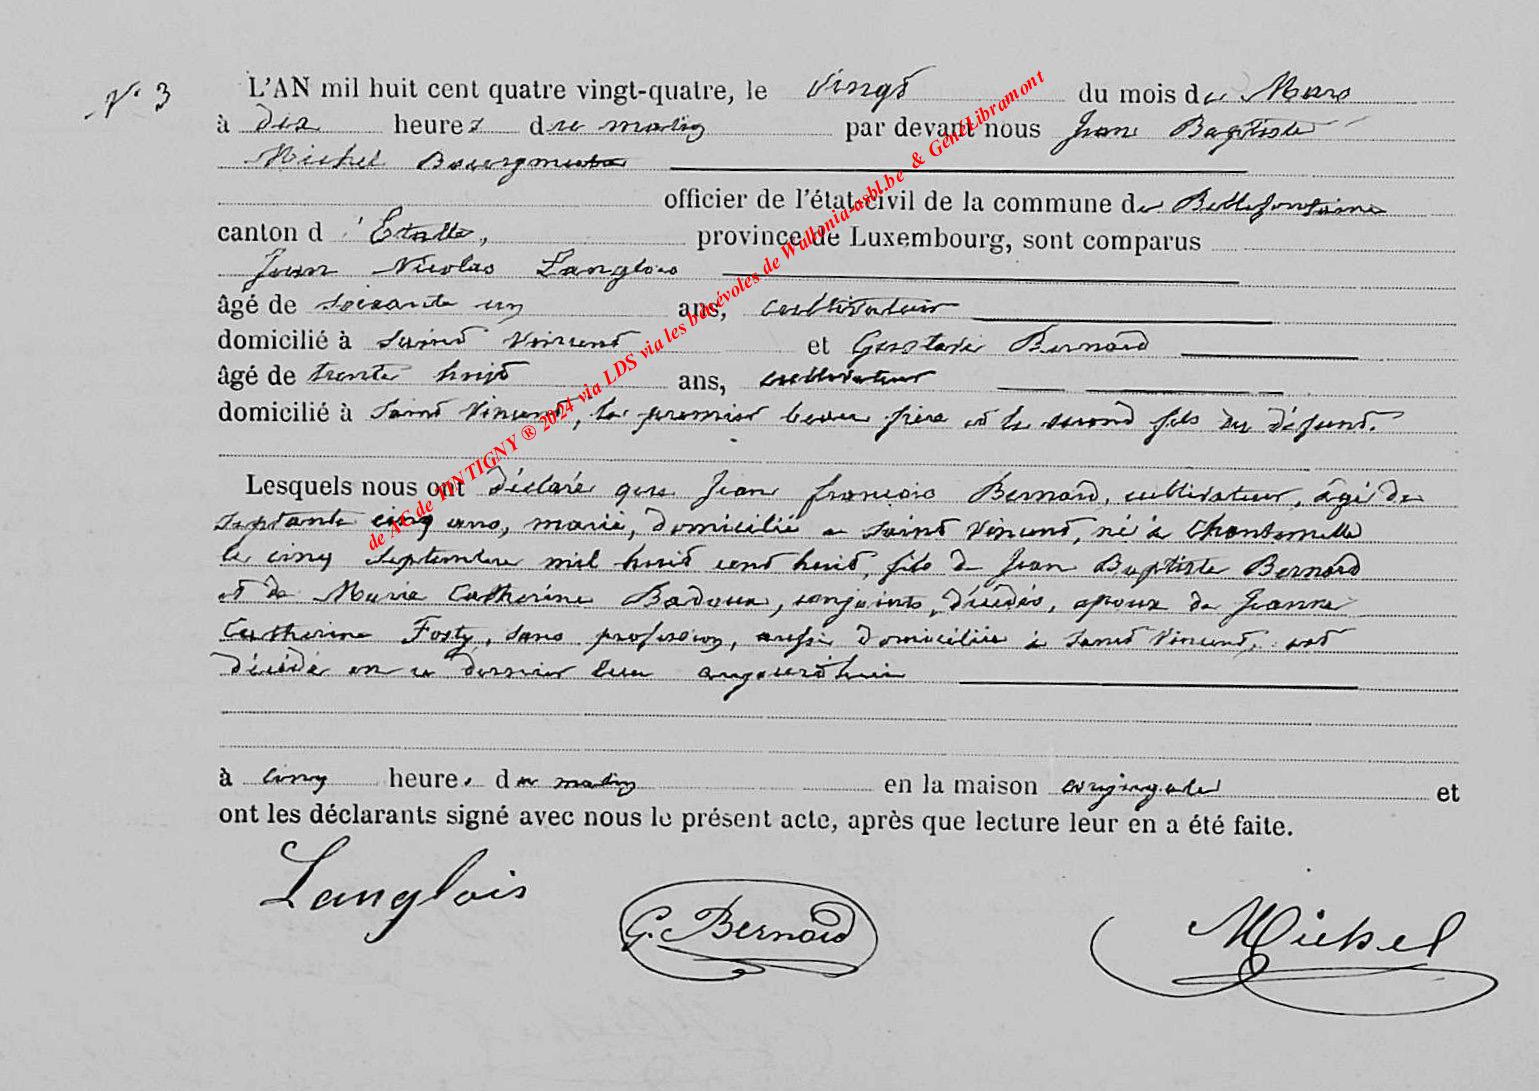 N° 3
L'AN mil huit cent quatre vingt-quatre, le vingt du mois de Mars
à dix heures du matin par devant nous Jean Baptiste
Michel Bourgmestre
officier de l'état-civil de la commune de Bellefontaine
canton d'Etalle, province de Luxembourg, sont comparus
Jean Nicolas Langlois
âgé de soixante un ans, cultivateur
domicilié à Saint Vincent et Gustave Bernard
âgé de trente huit ans, cultivateur
domicilié à Saint Vincent, le premier beau frère et le second fils du défunt.
Lesquels nous ont déclaré que Jean françois Bernard, cultivateur, âgé de
septante cinq ans, marié, domicilié a Saint Vincent, né à Chantemelle
le cinq Septembre mil huit cent huit, fils de Jean Baptiste Bernard
et de Marie Catherine Badoux, conjoints, décédés, époux de Jeanne
Catherine Fosty, sans profession, aussi domiciliée à Saint Vincent, est
décédé en ce dernier lieu aujourd'hui
à cinq heures du matin en la maison conjugale et
ont les déclarants signé avec nous le présent acte, après que lecture leur en a été faite.
Langlois G. Bernard Michel
de AC de TINTIGNY ® 2024 via LDS via les bénévoles de Wallonia-asbl.be & GenéLibramont